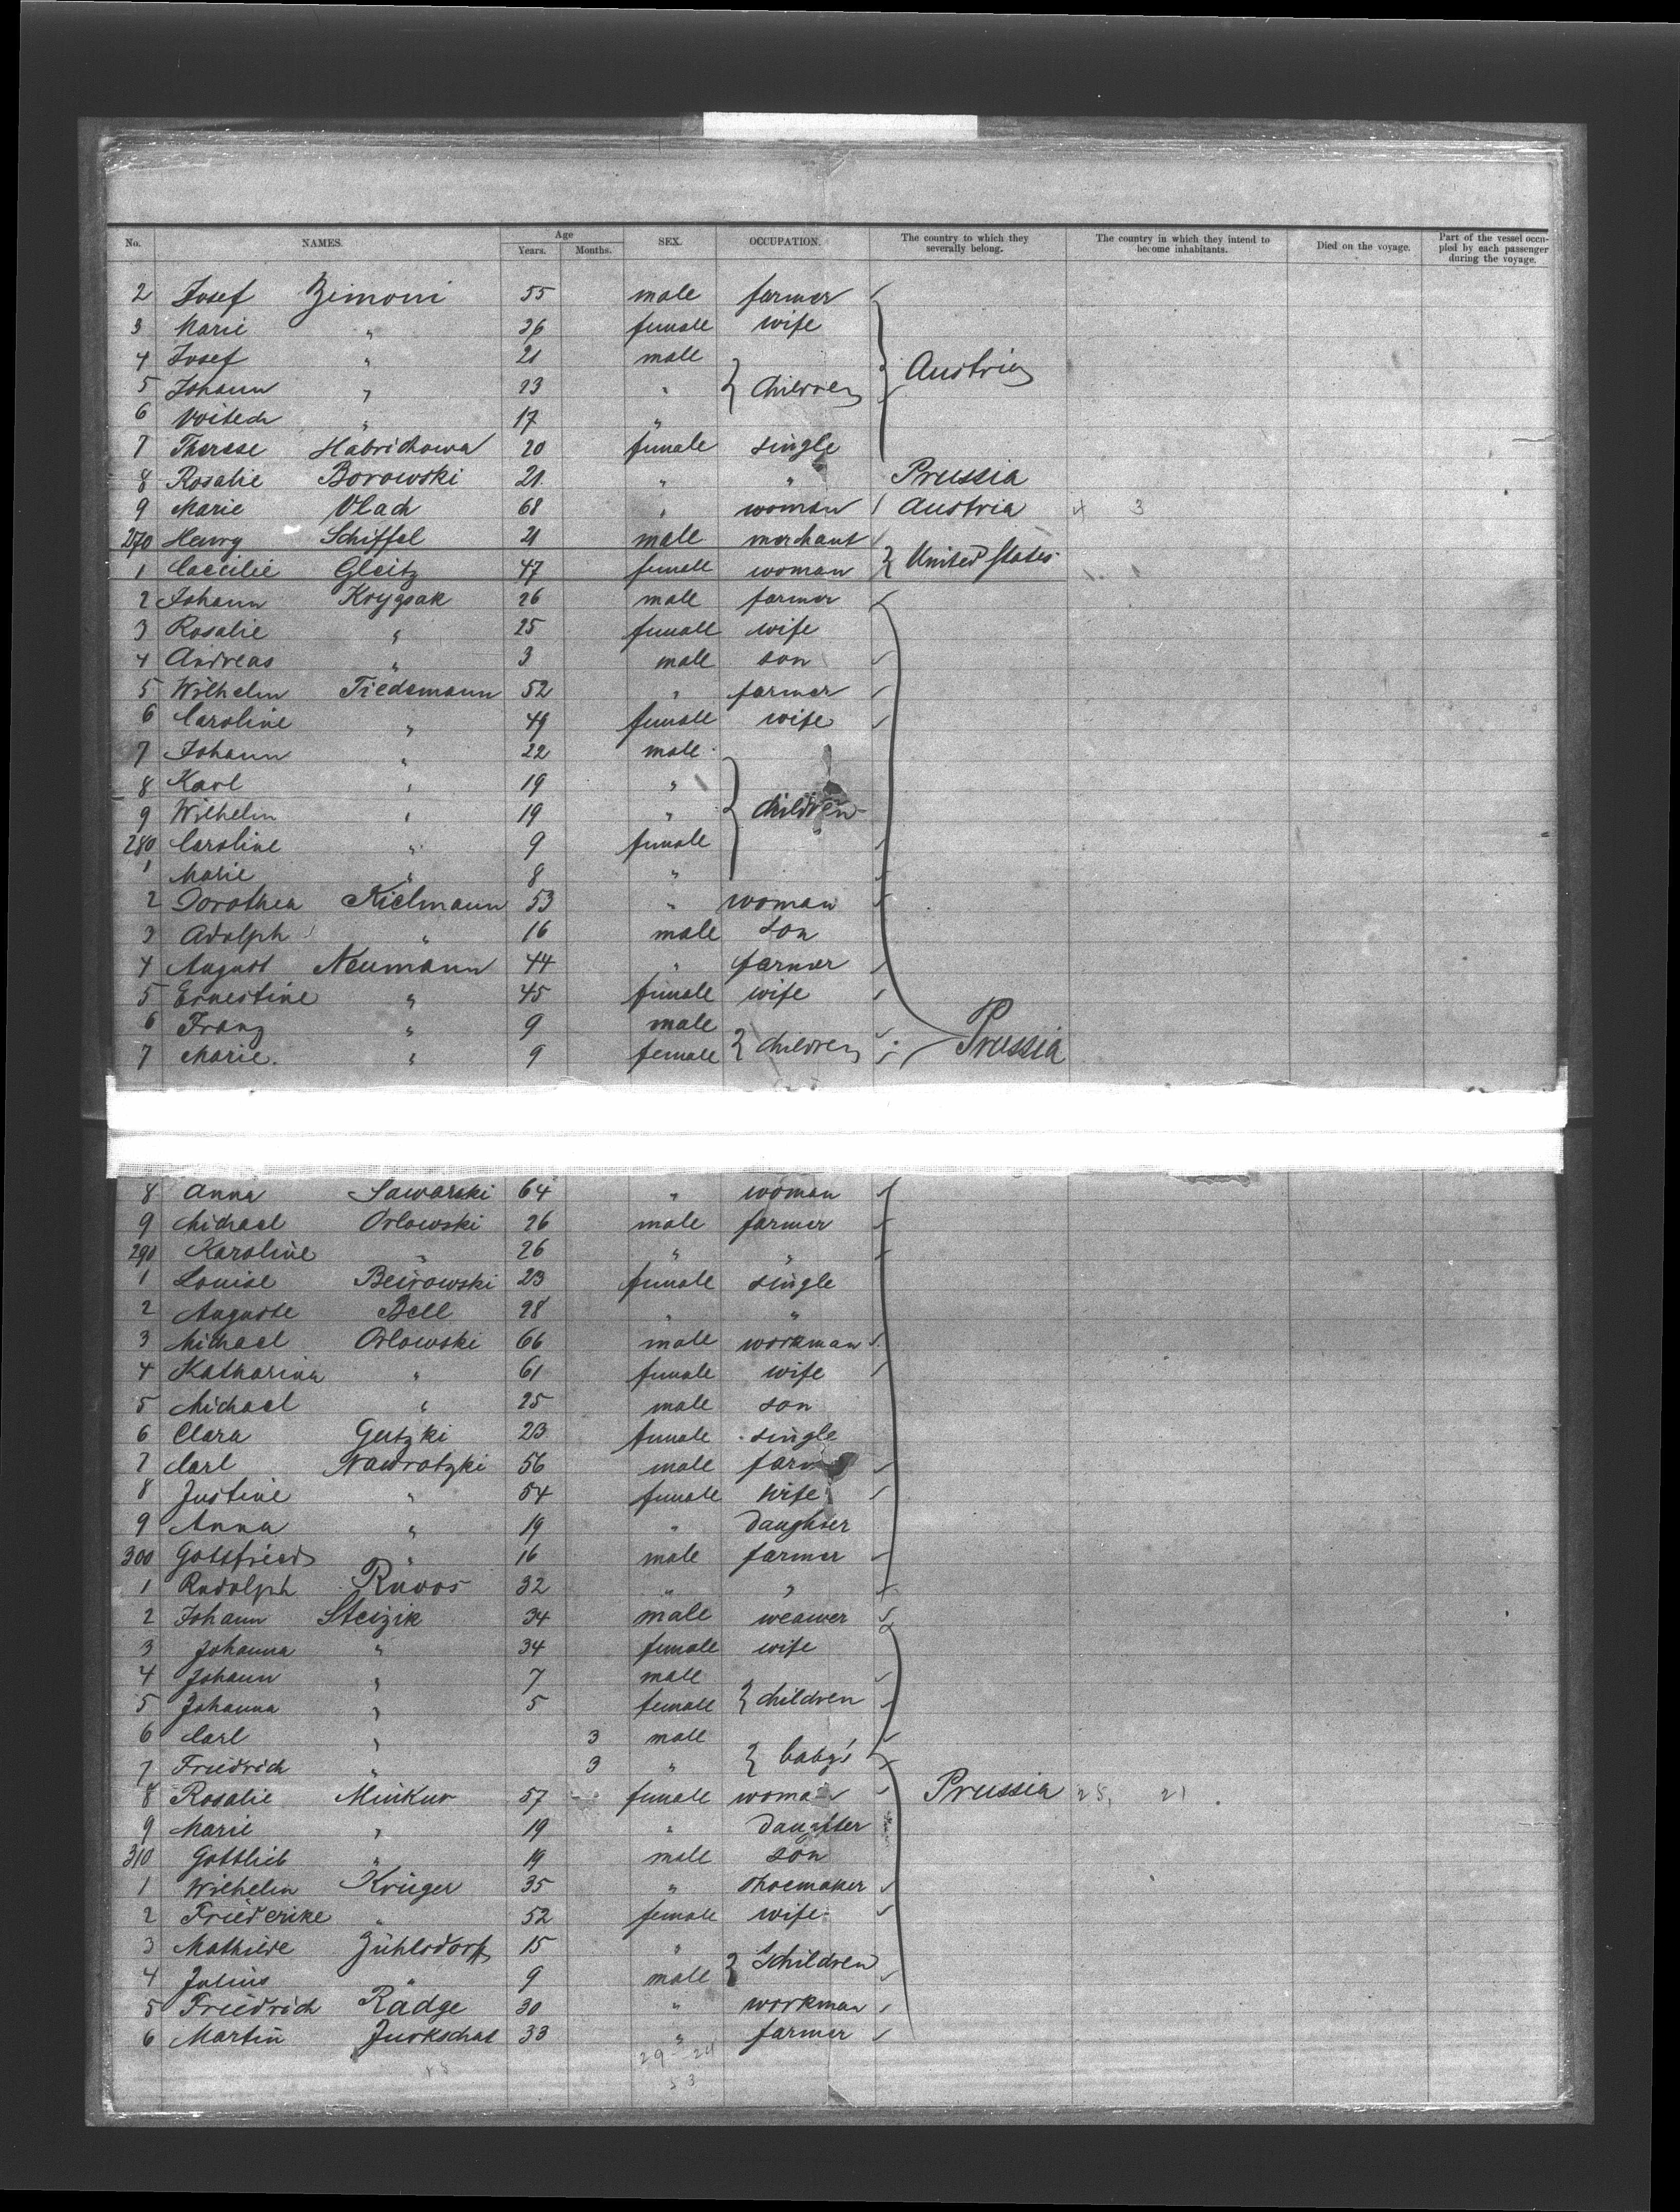 No. NAMES. Age Years. Months. SEX. OCCUPATION. The country to which they severally belong. The country in which they intend to become inhabitants. Died on the voyage. Part of the vessel occupied by each passenger during the voyage.
2 Josef Zimoni 55 male farmer
3 Marie " 36 female wife
4 Josef " 21 male
5 Johann " 23 " } children } Austria
6 Voitech " 17 "
7 Therese Habrichowa 20 female single
8 Rosalie Borowski 21 " " Prussia
9 Marie Vlach 68 " woman Austria 4 3
270 Henry Schiffel 21 male merchant
1 Caecilie Gleitz 47 female woman } United States
2 Johann Krygsak 26 male farmer
3 Rosalie " 25 female wife
4 Andreas " 3 male son
5 Wilhelm Tiedemann 52 " farmer
6 Caroline " 49 female wife
7 Johann " 22 male
8 Karl " 19 "
9 Wilhelm " 19 " } children
280 Caroline " 9 female
1 Marie " 8 "
2 Dorothea Kielmann 53 " woman
3 Adolph " 16 male son
4 August Neumann 44 " farmer
5 Ernestine " 45 female wife
6 Franz " 9 male
7 Marie " 9 female } children Prussia
8 Anna Sawarski 64 " woman
9 Michael Orlowski 26 male farmer
290 Karoline " 26 " "
1 Louise Beirowski 23 female single
2 Auguste Bell 28 " "
3 Michael Orlowski 66 male workman
4 Katharina " 61 female wife
5 Michael " 25 male son
6 Clara Gutzki 23 female single
7 Carl Nawrotzki 56 male
8 Justine " 54 female wife
9 Anna " 19 " daughter
300 Gottfried " 16 male farmer
1 Rudolph 32 " "
2 Johann Steizik 34 male weawer
3 Johanna " 34 female wife
4 Johann " 7 male
5 Johanna " 5 female } children
6 Carl " 3 male
7 Friedrich " 3 " } baby's
8 Rosalie Minkur 57 female woman Prussia 25, 21
9 Marie " 19 " daughter
310 Gottlieb " 19 male son
1 Wilhelm Krüger 35 " shoemaker
2 Friederike " 52 female wife
3 Mathilde Zühlsdorff 15 "
4 Julius " 9 male } schildren
5 Friedrich Radge 30 " workman
6 Martin Jurkschat 33 " farmer
29 24
53